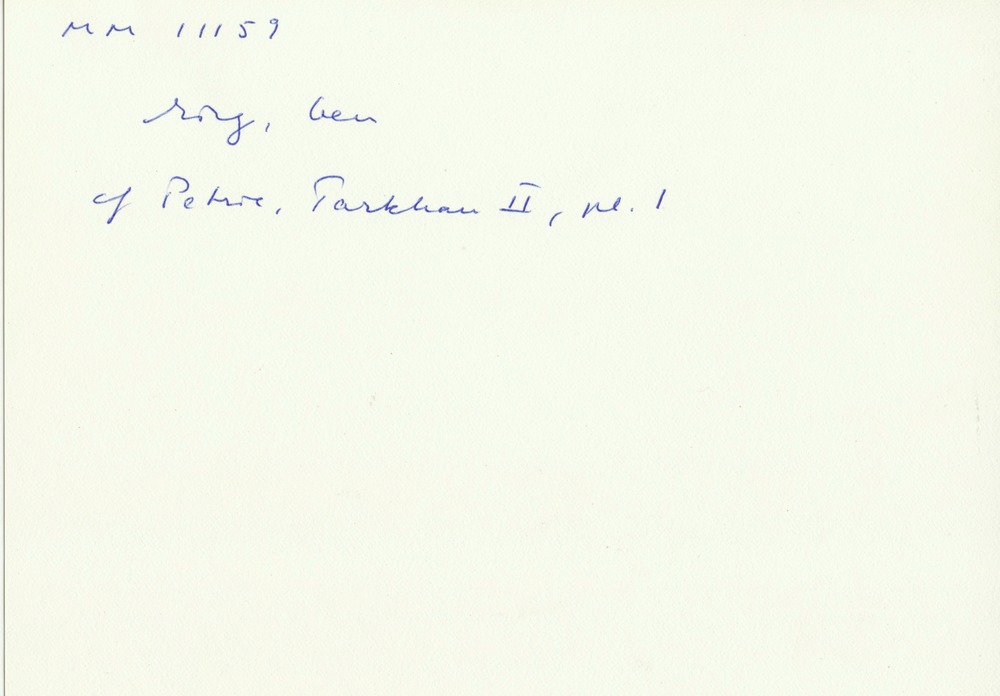 MM 11159
ring, ben
cf Petrie, Tarkhan II, pl. 1